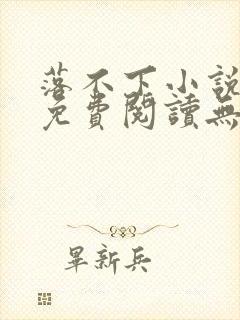 落不下小說
免費閱讀無
畢新兵